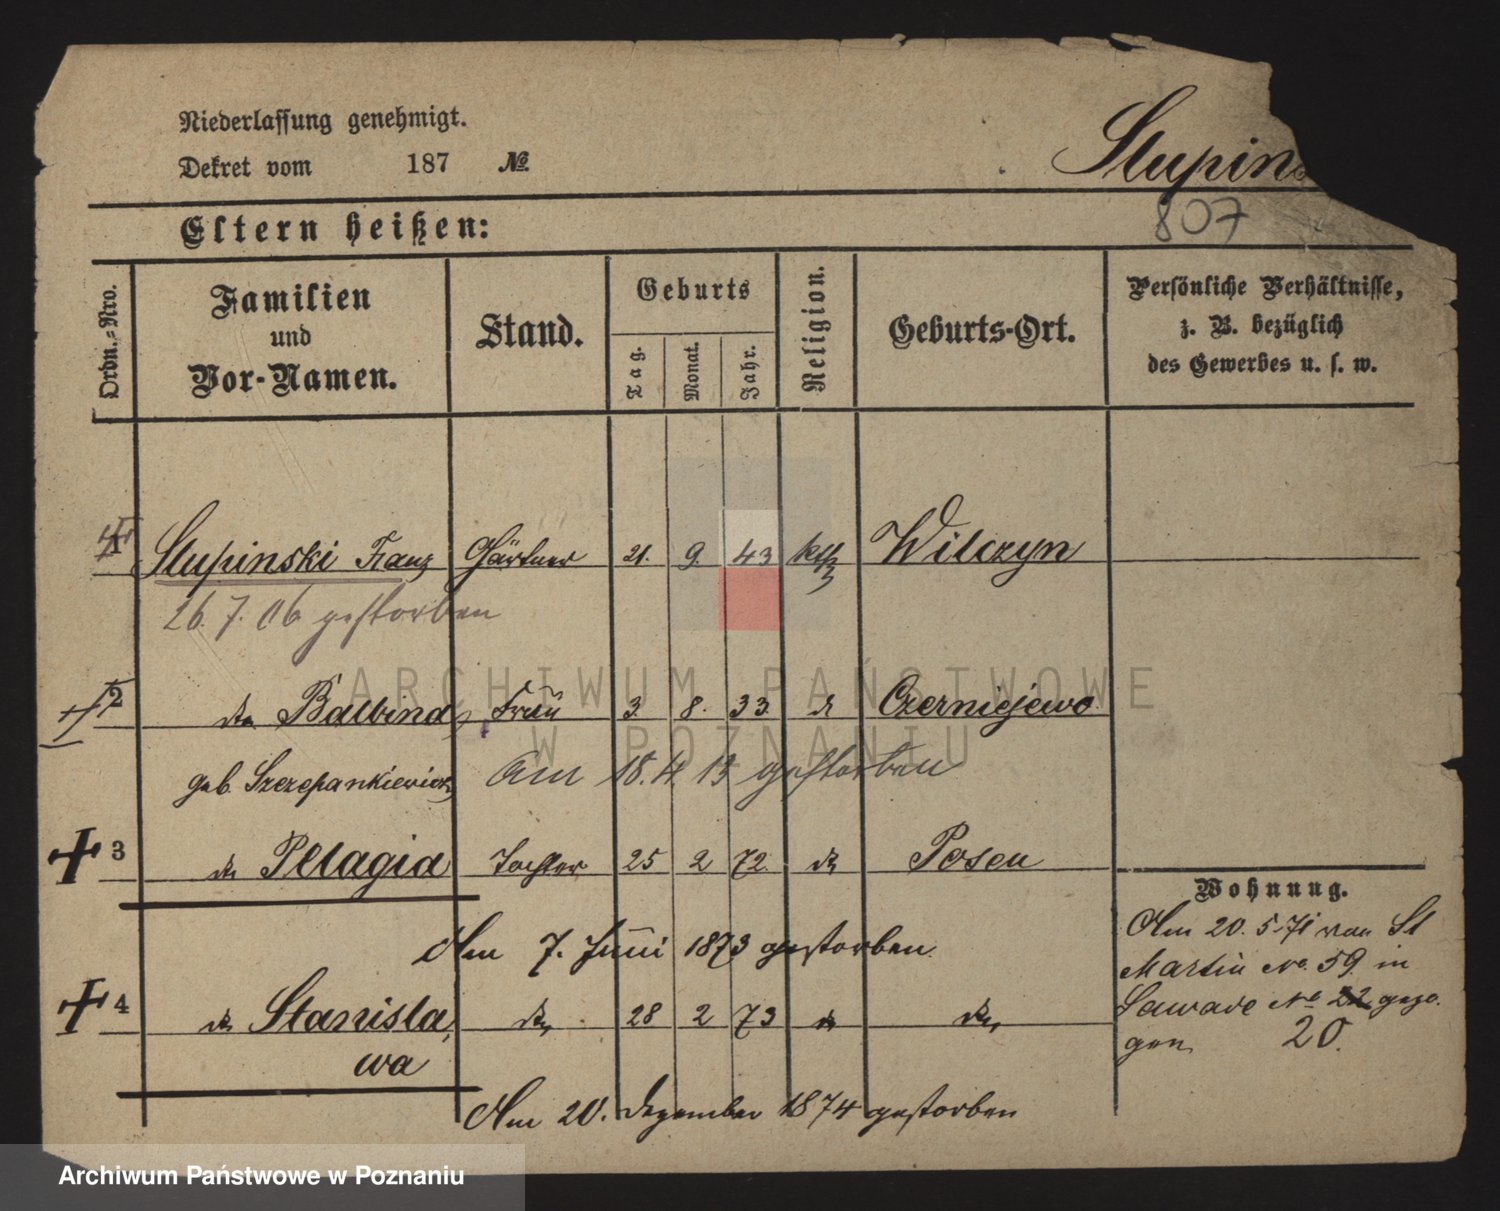 Niederlassung genehmigt.
Dekret vom 187 №
Slupins
807
Eltern heißen:
Ordn.-Nro.
Familien und Vor-Namen.
Stand.
Geburts
Tag.
Monat.
Jahr.
Religion.
Geburts-Ort.
Persönliche Verhältnisse,
z. B. bezüglich
des Gewerbes u. s. w.
1 Slupinski Franz Gärtner 21. 9. 43 kth Wilczyn
26. 7. 06 gestorben
2 dto Balbina, Frau 3. 8. 33. d Czerniejewo
geb. Szczepankiewicz Am 18. 4. 13 gestorben
3 do Pelagia Tochter 25 2 72. do Posen
Am 7. Juni 1873 gestorben.
4 do Stanisla, do. 28 2 73 do do,
wa
Am 20. Dezember 1874 gestorben
Wohnung.
Am 20. 5. 71 von St
Martin No. 59 in
Sawade No 22 gezo.
gen 20.
ARCHIWUM PAŃSTWOWE
W POZNANIU
Archiwum Państwowe w Poznaniu